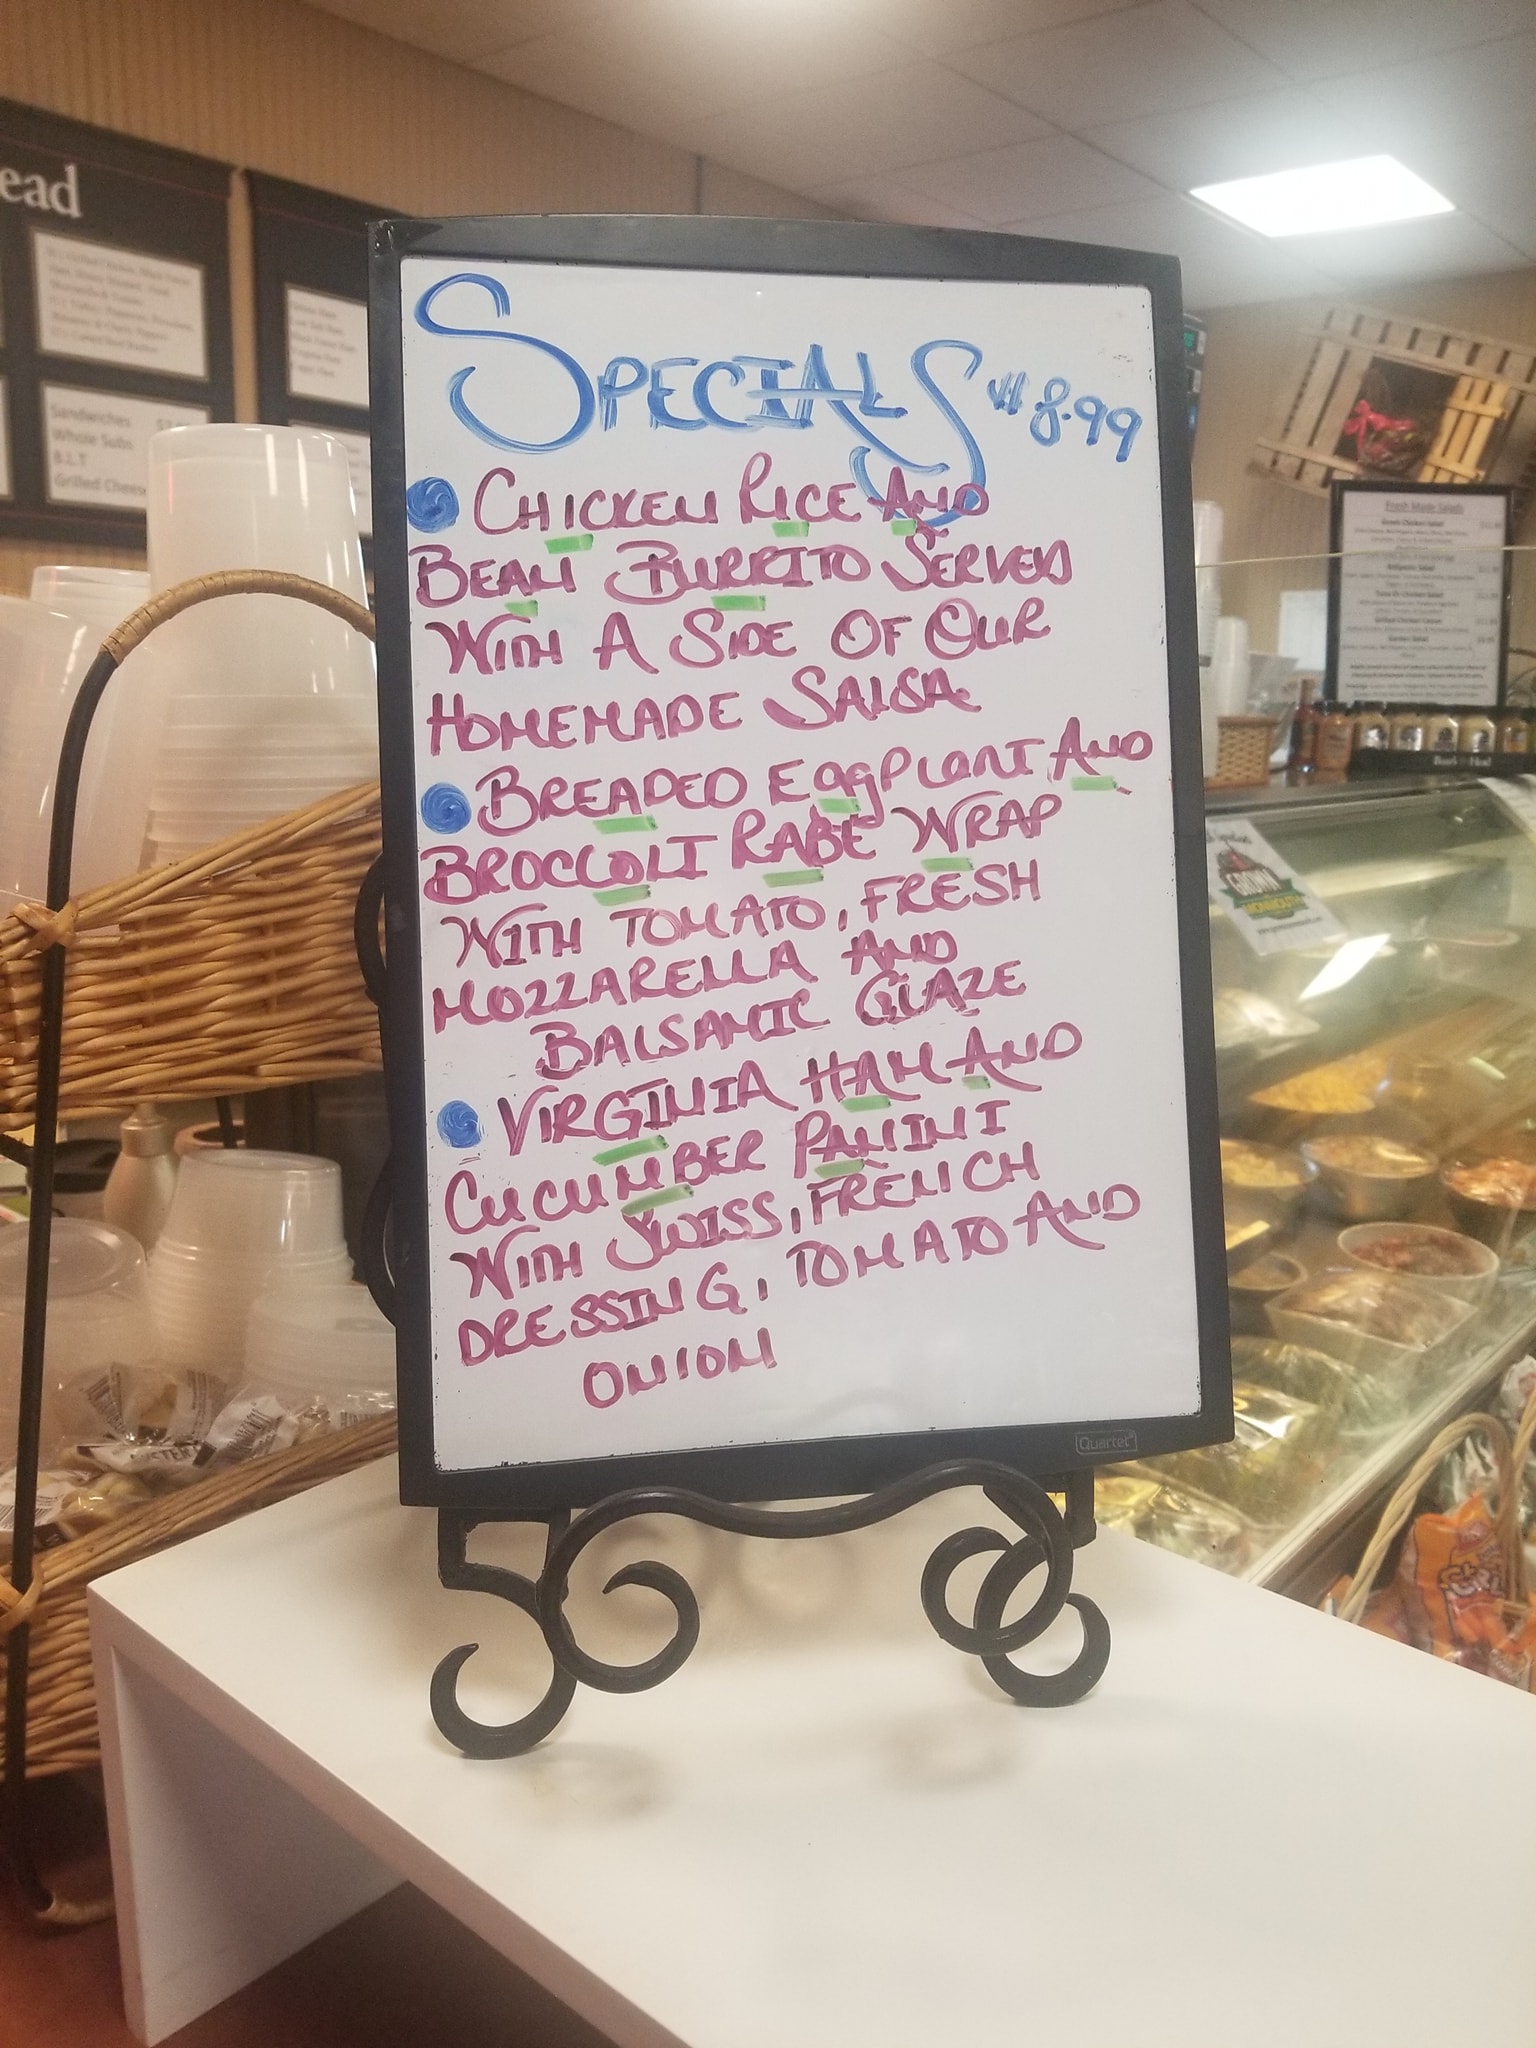 ead
Sandwiches
Whole Subs
B.L.T
Grilled Cheese
SPECIALS $8.99
CHICKEN RICE AND
BEAN BURRITO SERVED
WITH A SIDE OF OUR
HOMEMADE SALSA
BREADED EggPlANT AND
BROCCLOLI RABE WRAP
WITH TOMATO, FRESH
MOZZARELLA AND
BALSAMIC GLAZE
VIRGINIA HAM AND
CUCUMBER PANINI
WITH SWISS, FRENCH
DRESSING, TOMATO AND
ONION
Quartet
Fresh Made Salads
Boar's Head
GROWN
MONMOUTH